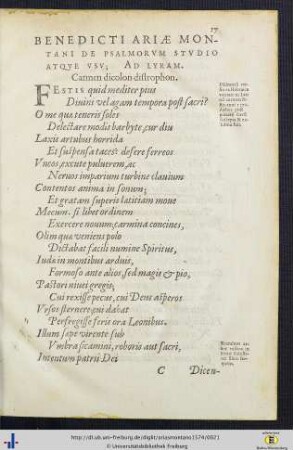 17
BENEDICTI ARIÆ MON-
TANI DE PSALMORVM STVDIO
ATQVE VSV; AD LYRAM.
Carmen dicolon distrophon.
FESTIS quid mediter pius
Diuini vel agam tempora post sacri?
O me qua teneris soles
Delectare modis barbyte, cur diu
Laxis artubus horrida
Et suspensa taces? desere ferreos
Vncos, excute puluerem, ac
Neruos imparium turbine clauium
Contentos anima in sonum;
Et gratam superis lætitiam moue
Mecum. si libet ordinem
Exercere nouum, carmina concines,
Olim quæ veniens polo
Dictabat facili numine Spiritus,
Iudæ in montibus arduis,
Formoso ante alios, sed magis &amp; pio,
Pastori niuei gregis,
Cui rexisse pecus, cui Deus asperos
Vrsos sternere qui dabat
Perfregisse feris ora Leonibus.
Illum sæpe virente sub
Vmbra sicamini, roboris aut sacri,
Intentum patrii Dei
C Dicen-
http://dl.ub.uni-freiburg.de/diglit/ariasmontano1574/0021
© Universitätsbibliothek Freiburg